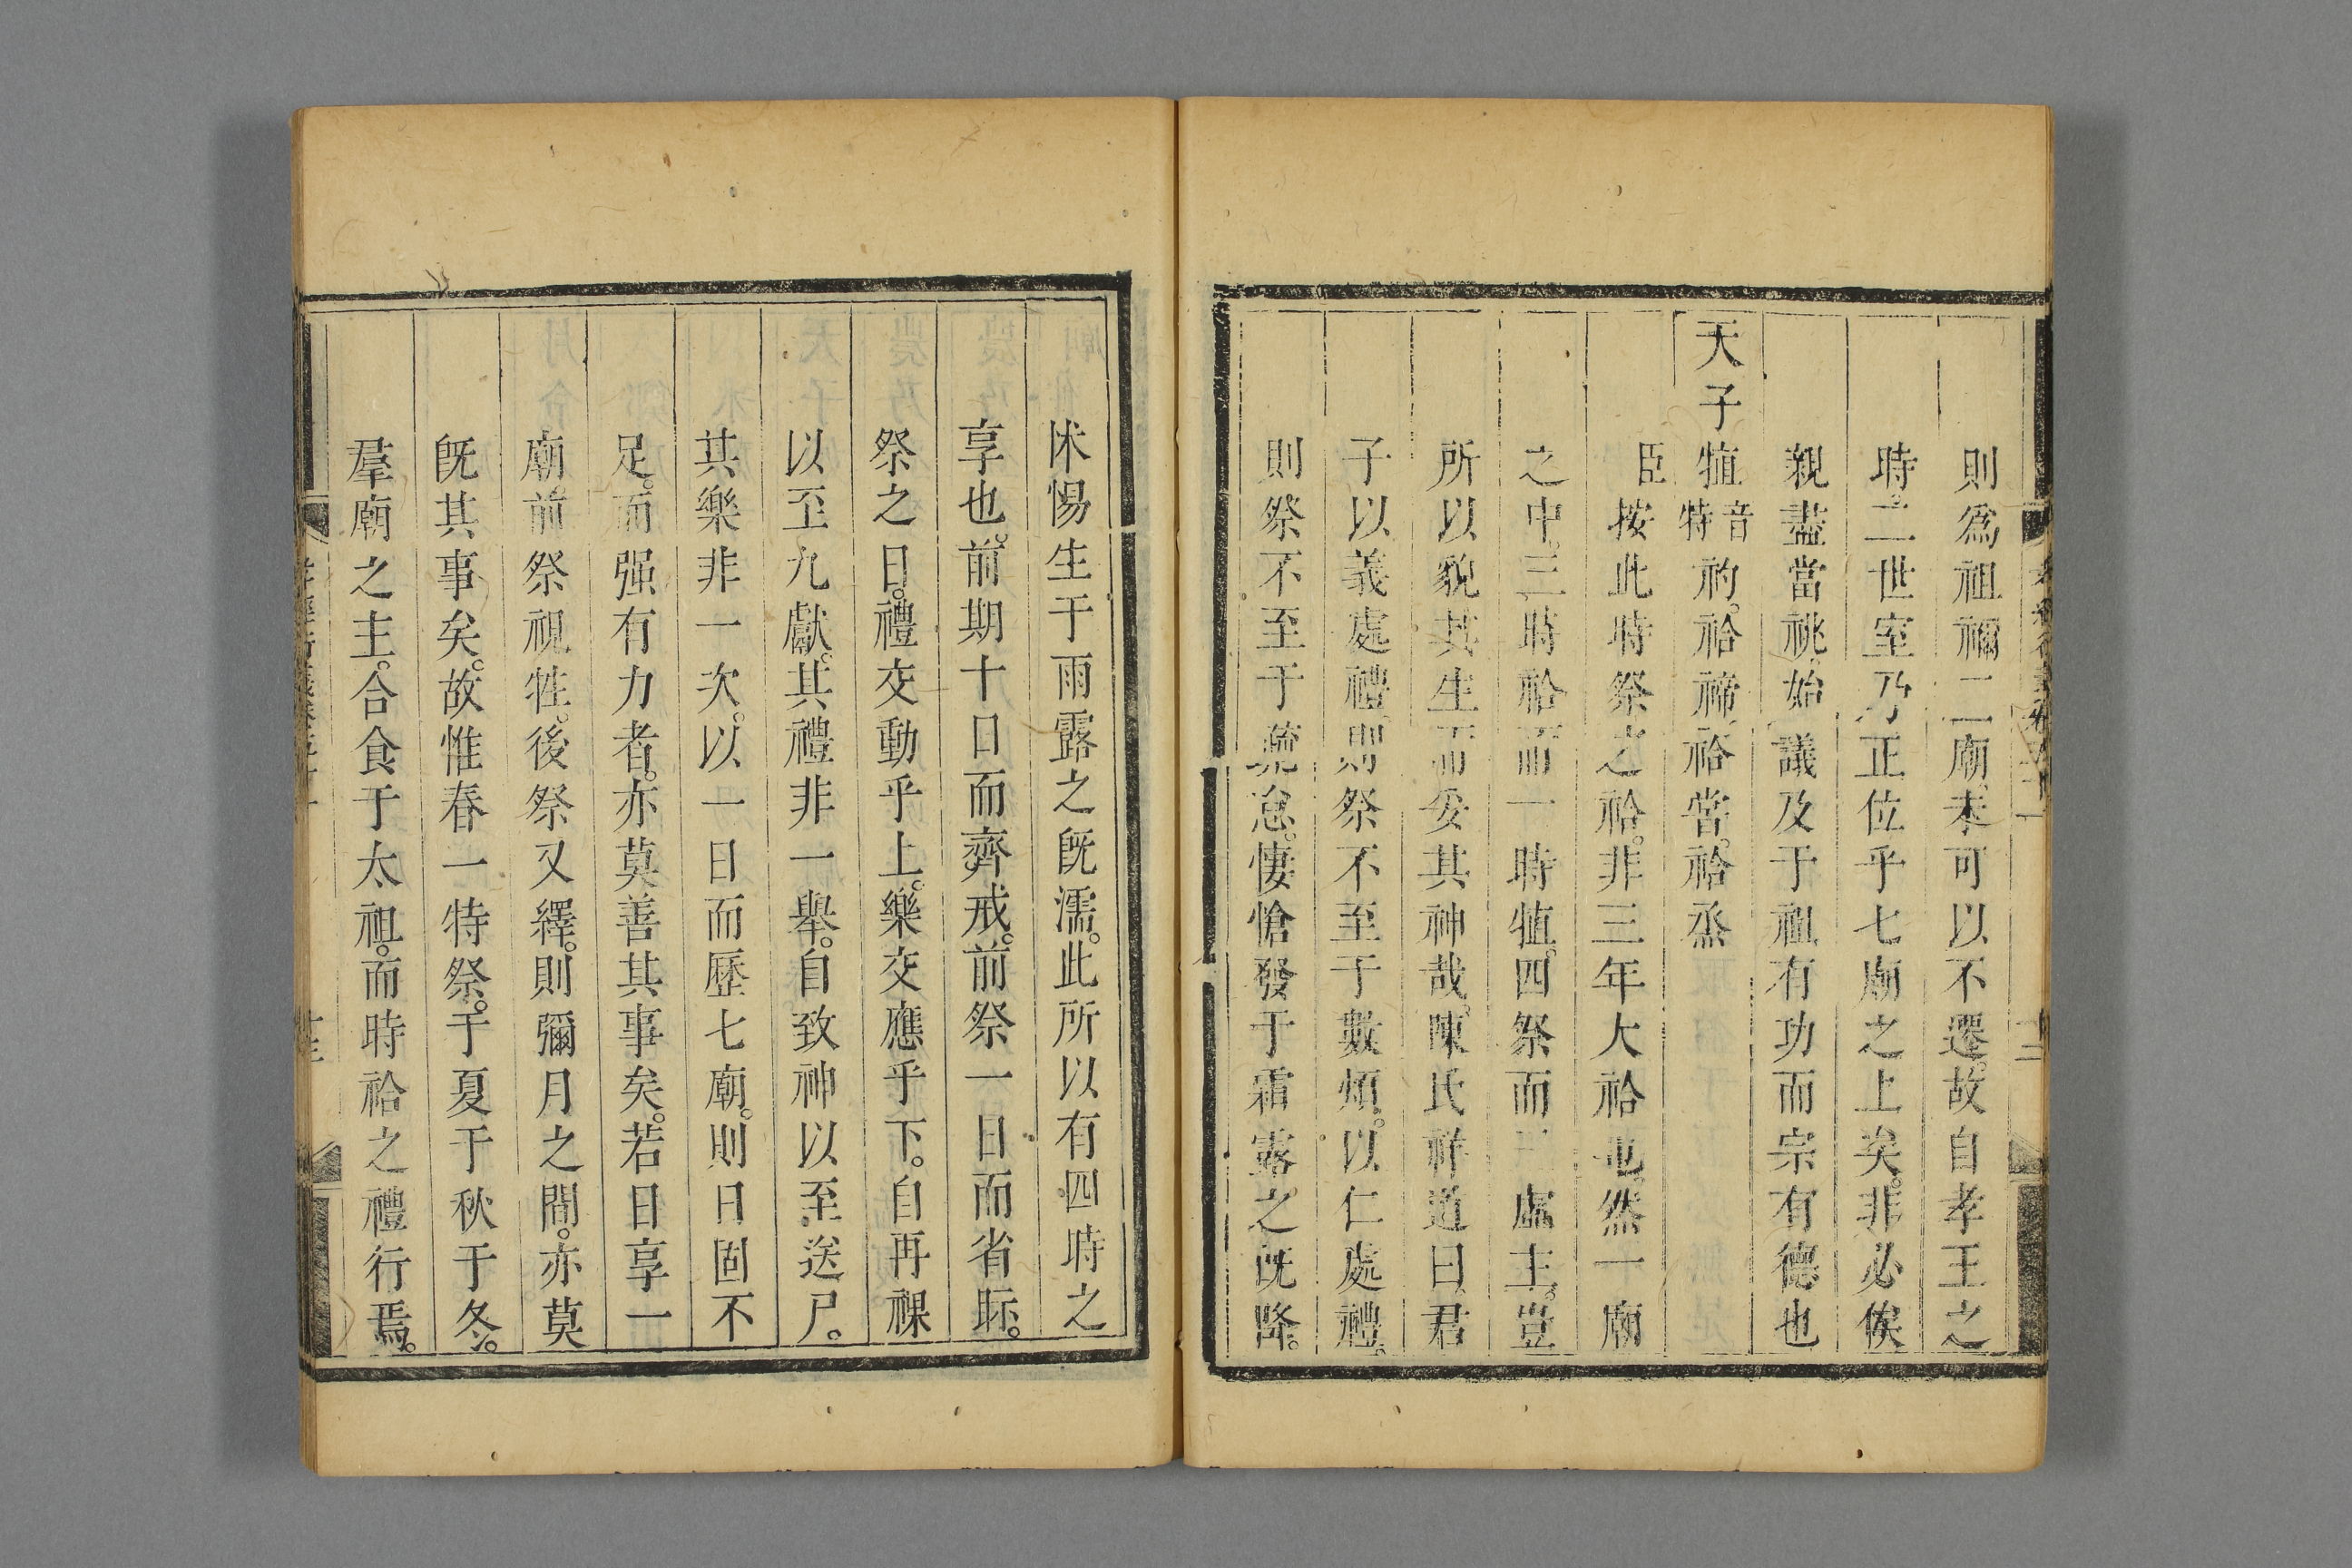 則爲祖禰二廟未可以不遷故自孝王之
時二世室乃正位乎七廟之上矣非必俟
親盡當祧始議及于祖有功而宗有德也
天子犆音特礿祫禘祫嘗祫烝
臣按此時祭之祫非三年大祫也然一廟
之中三時祫而一時犆四祭而三虛主豈
所以貌其生而妥其神哉陳氏祥道曰君
子以義處禮則祭不至于數煩以仁處禮
則祭不至于疏怠悽愴發于霜露之旣降
怵惕生于雨露之旣濡此所以有四時之
享也前期十日而齊戒前祭一日而省眡
祭之日禮交動乎上樂交應乎下自再祼
以至九獻其禮非一舉自致神以至送尸
其樂非一次以一日而歷七廟則日固不
足而强有力者亦莫善其事矣若日享一
廟前祭視牲後祭又繹則彌月之間亦莫
旣其事矣故惟春一特祭于夏于秋于冬
羣廟之主合食于太祖而時祫之禮行焉